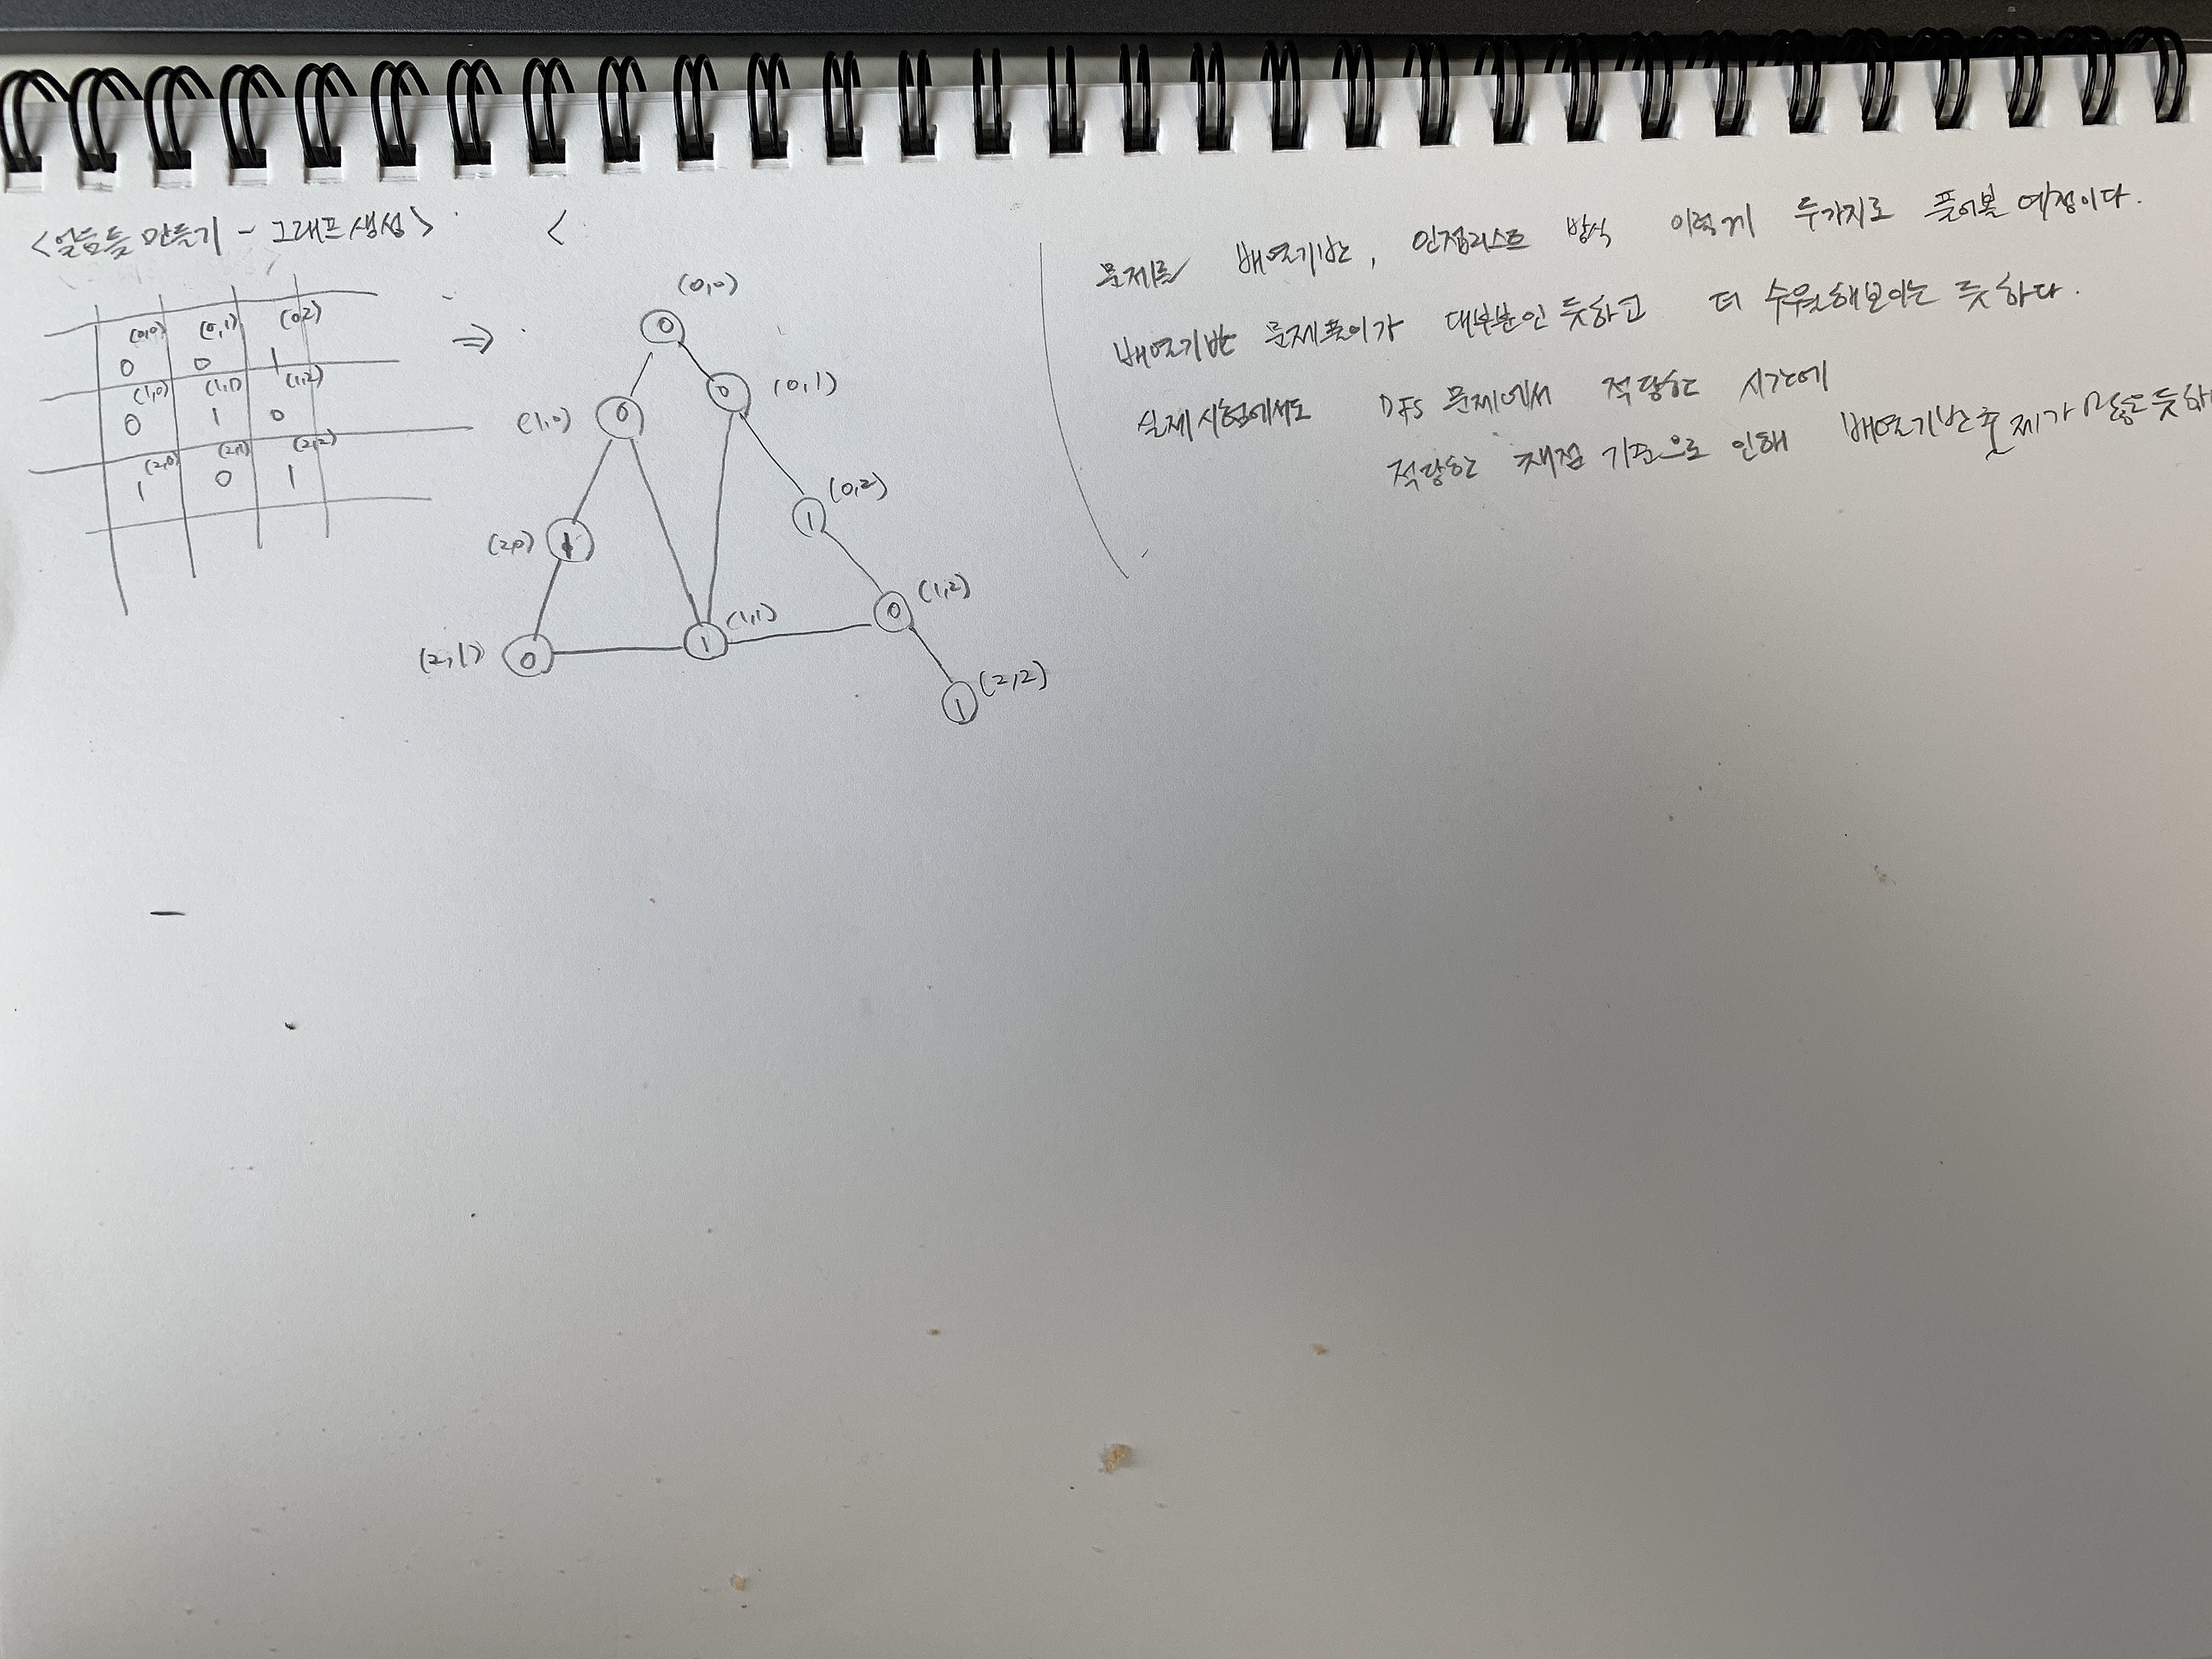 <얼음틀 만들기 - 그래프 생성>
(0,0) (0,1) (0,2)
0 0 1
(1,0) (1,1) (1,2)
0 1 0
(2,0) (2,1) (2,2)
1 0 1
⇒
<
(0,0)
0
(1,0) 0 0 (0,1)
(2,0) 1 1 (0,2)
0 (1,2)
(2,1) 0 1 (1,1)
1 (2,2)
문제를 배열기반, 인접리스트 방식 이렇게 두가지로 풀어볼 예정이다.
배열기반 문제풀이가 대부분인 듯하고 더 수월해보이는 듯 하다.
실제 시험에서도 DFS 문제에서 적당한 시간에
적당한 채점 기준으로 인해 배열기반 출제가 많은 듯하